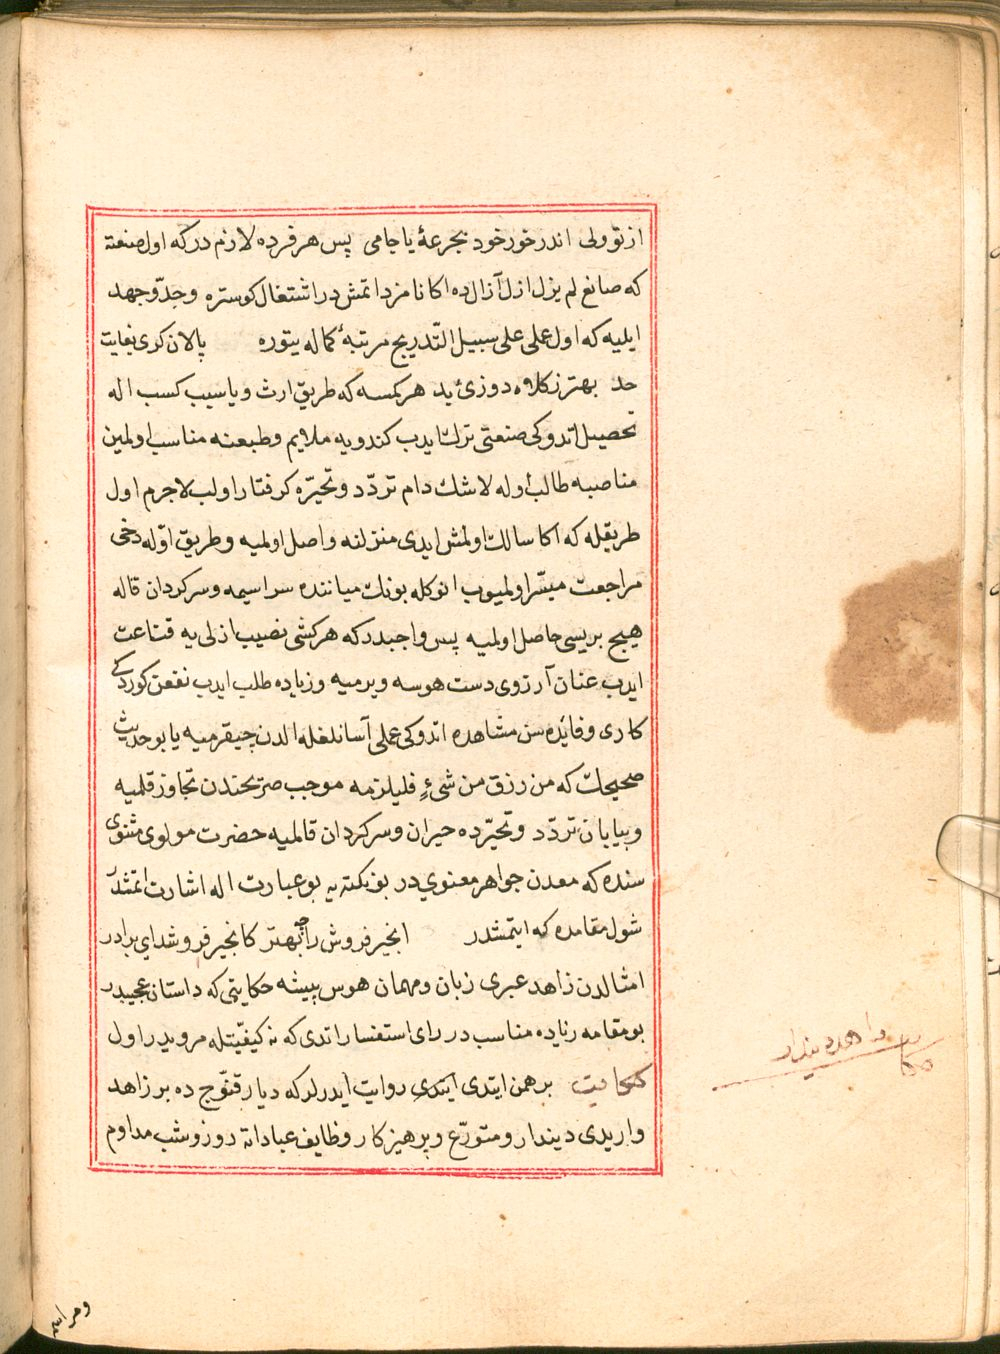 از تو ولی اندر خور خود بجرعهٔ یا جامی پس هر فرده لازم در که اول صنعته
که صانع لم یزل ازل آزال ده اکا نامزد اتمش در اشتغال کوستره وجدّ وجهد
ایلیه که اول عملی علی سبیل التّدریج مرتبهٔ کماله یتوره پالان کری بغایت
حد بهتر ز کلاه دوزیٔ ید هر کمسه که طریق ارث ویا سبب کسب اله
تحصیل اتدوکی صنعتی ترك ایدب کندویه ملایم وطبعنه مناسب اولمین
مناصبه طالب اوله لاشك دام تردّد وتحیّره کرفتار اولب لاجرم اول
طریقله که اکا سالك اولمش ایدی منزلنه واصل اولمیه وطریق اوّله دخی
مراجعت میسّر اولمیوب انوکله بونك میاننده سراسیمه وسرکردان قاله
هیچ بریسی حاصل اولمیه پس واجبدر که هر کشی نصیب ازلی یه قناعت
ایدب عنان آرزوی دست هوسه ویرمیه وزیاده طلب ایدب نفعن کوردکی
کاری وفائده سن مشاهده اتدوکی عملی آسانلغله الدن چیقرمیه یا بو حدیث
صحیحك که من رزق من شیءٍ فلیلزمه موجب صریحندن تجاوز قلمیه
وبیابان تردّد وتحیّرده حیران وسرکردان قالمیه حضرت مولوی مثنوی
سنده که معدن جواهر معنوی در بو نکته یه بو عبارت اله اشارت اتمشدر
شول مقامده که ایتمشدر انجیر فروش را چه بهتر کانجیر فروشد ای برادر
امثالدن زاهد عبری زبان ومهمان هوس پیشه حکایتی که داستان عجیبدر
بو مقامه زیاده مناسب در رای استفسار اتدی که نه کیفیّتله مرویدر اول
حکایت برهمن ایتدی ایتدی روایت ایدرلر که دیار قنّوج ده بر زاهد
واریدی دیندار ومتورّع وپرهیزکار وظایف عباداتة روز وشب مداوم
حکایت زاهد دیندار
ومراسم